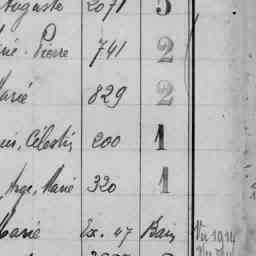 Auguste 2071 5
Pierre 741 2
Marie 829 2
Célestin 200 1
Marie 320 1
Marie Ex. 47 Bain
Vu 1914